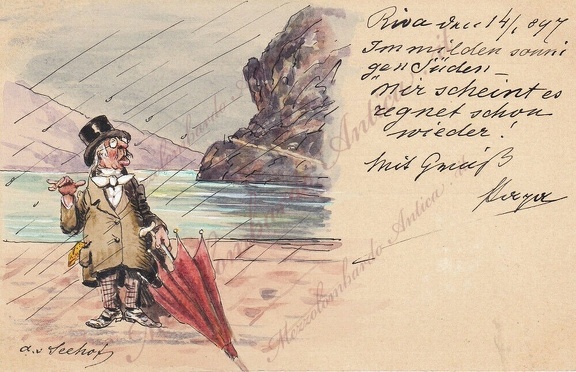 Riva den 14/1 897
Im milden sonni
gen Süden –
"Mir scheint es
regnet schon
wieder!
Mit Gruß
a. v. Seehof
Mezzolombardo Antica